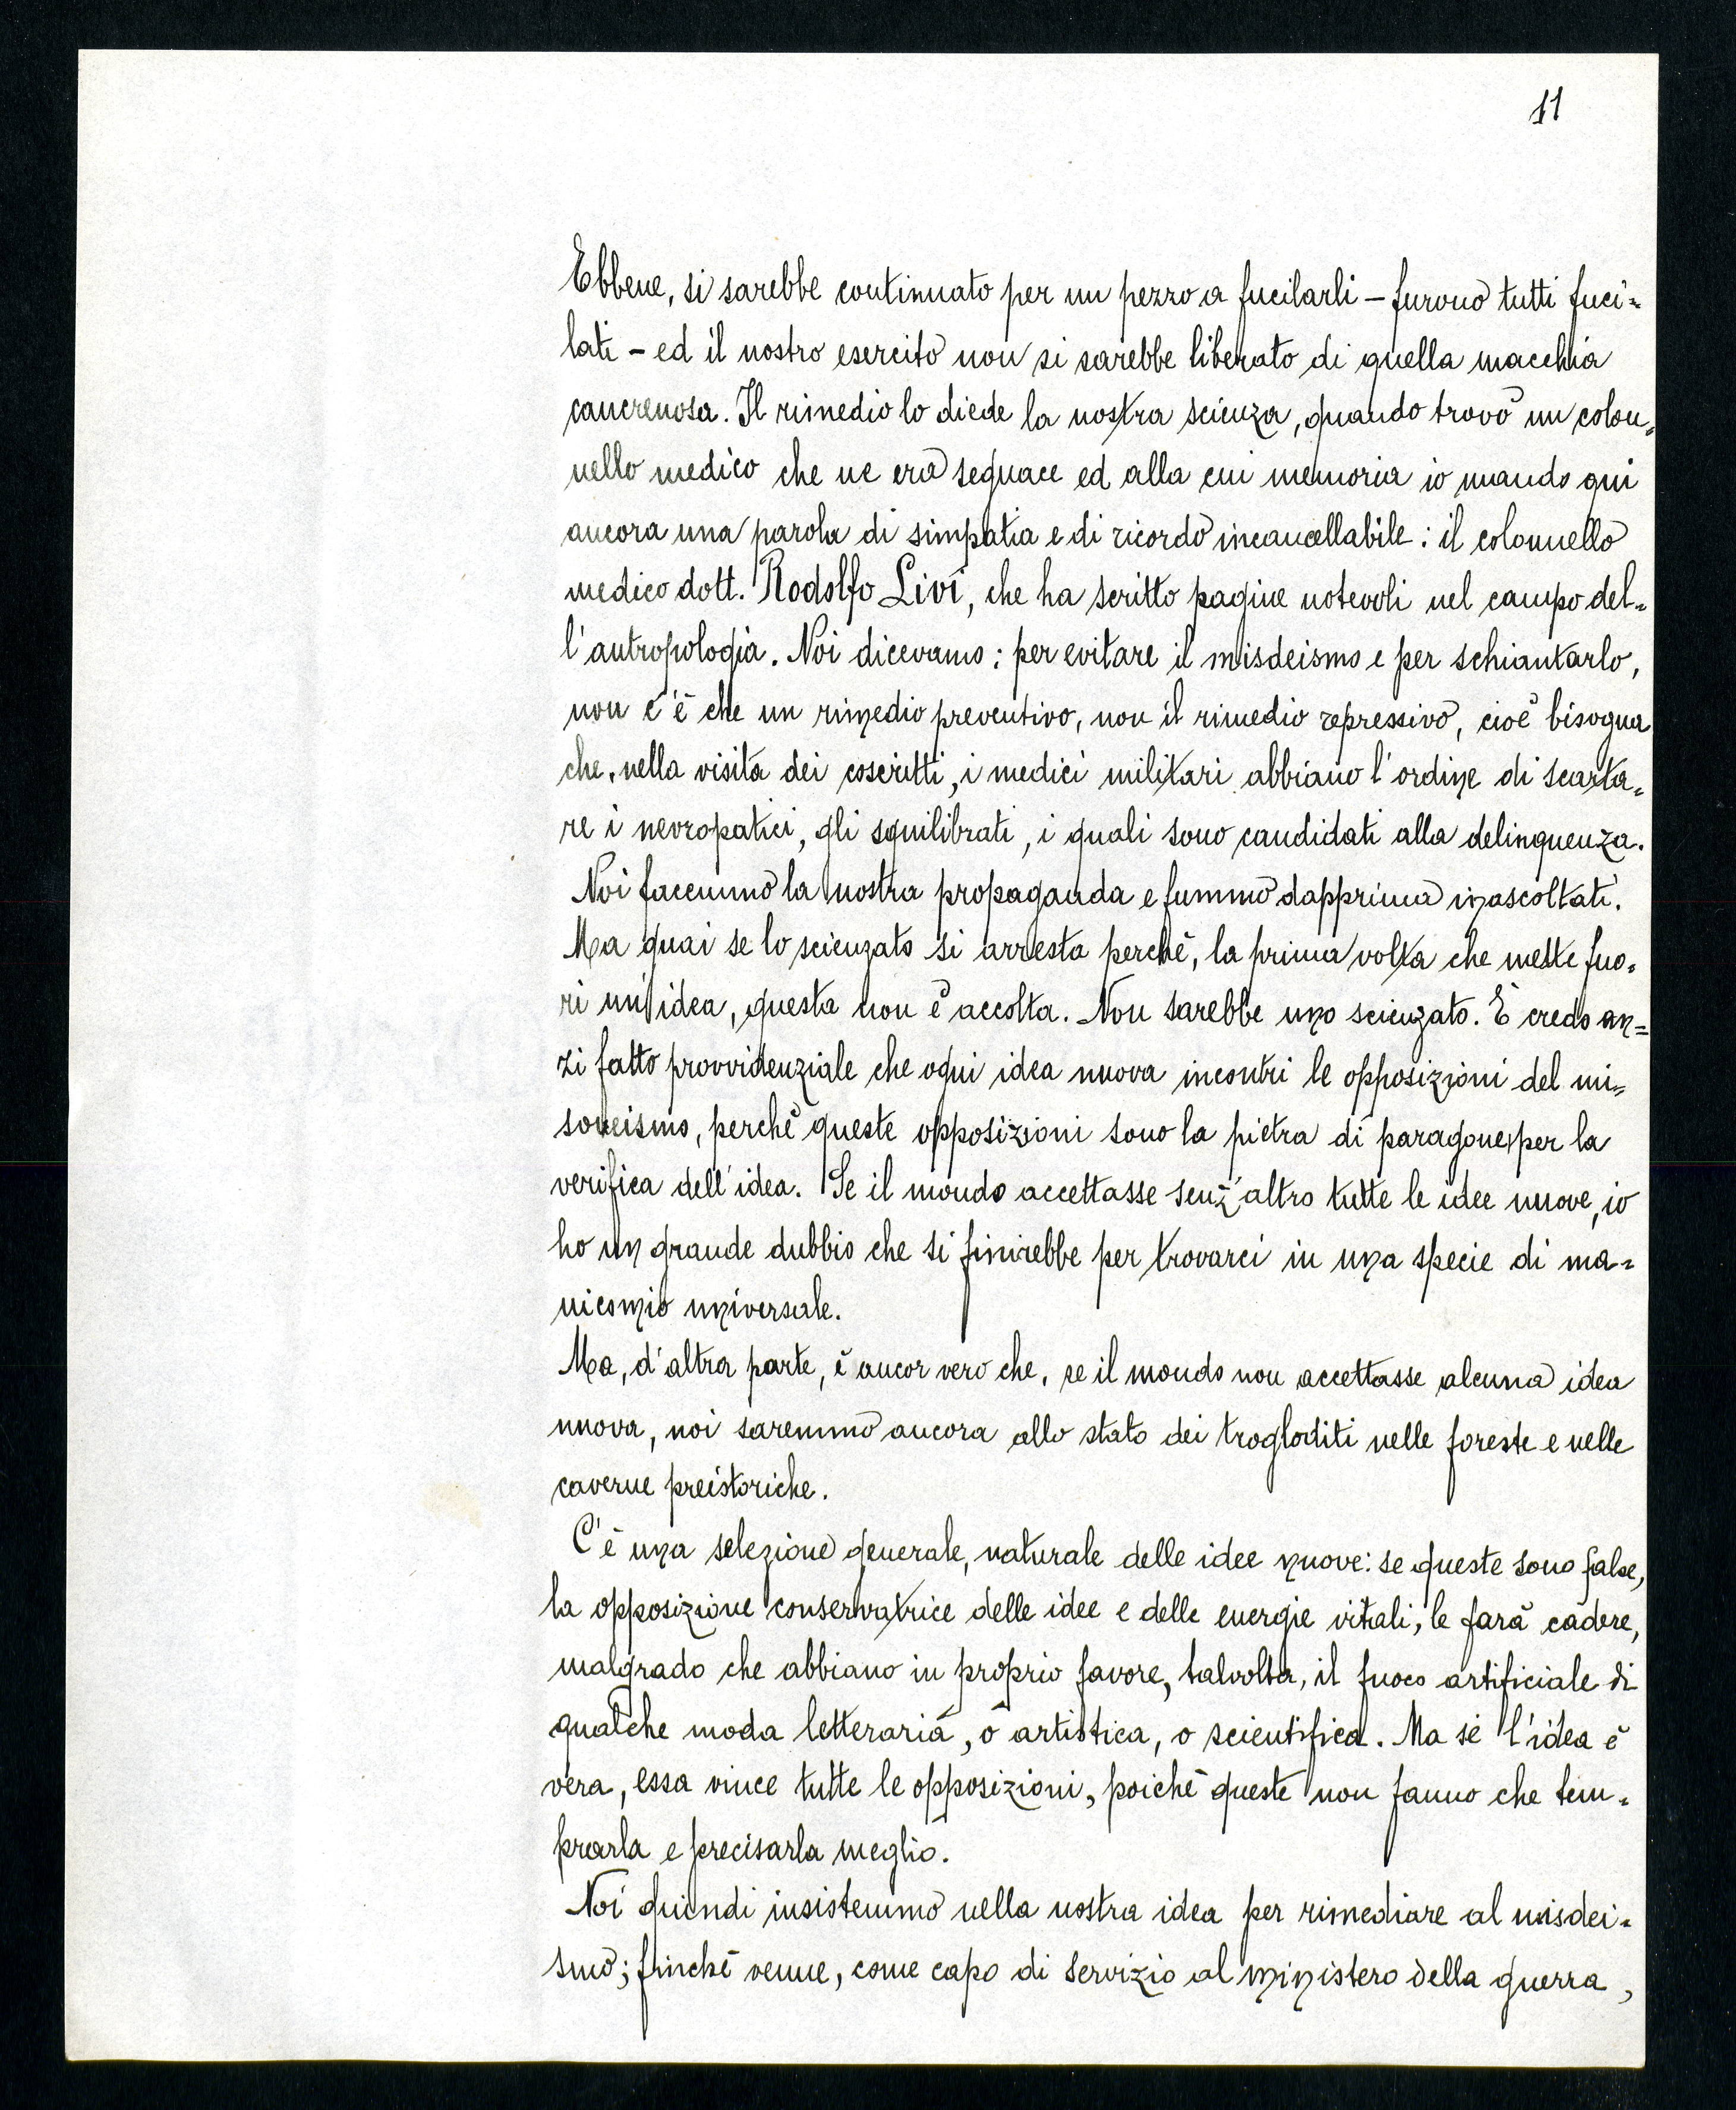 11
Ebbene, si sarebbe continuato per un pezzo a fucilarli – furono tutti fuci=
lati – ed il nostro esercito non si sarebbe liberato di quella macchia
cancrenosa. Il rimedio lo diede la nostra scienza, quando trovò un colon=
nello medico che ne era seguace ed alla cui memoria io mando qui
ancora una parola di simpatia e di ricordo incancellabile: il colonnello
medico dott. Rodolfo Livi, che ha scritto pagine notevoli nel campo del=
l'antropologia. Noi dicevamo: per evitare il misdeismo e per schiantarlo,
non c'è che un rimedio preventivo, non il rimedio repressivo, cioè bisogna
che, nella visita dei coscritti, i medici militari abbiano l'ordine di scarta=
re i nevropatici, gli squilibrati, i quali sono candidati alla delinquenza.
Noi facemmo la nostra propaganda e fummo dapprima inascoltati.
Ma guai se lo scienzato si arresta perchè, la prima volta che mette fuo=
ri un'idea, questa non è accolta. Non sarebbe uno scienzato. E credo an=
zi fatto provvidenziale che ogni idea nuova incontri le opposizioni del mi=
soneismo, perchè queste opposizioni sono la pietra di paragone per la
verifica dell'idea. Se il mondo accettasse senz'altro tutte le idee nuove, io
ho un grande dubbio che si finirebbe per trovarci in una specie di ma=
nicomio universale.
Ma, d'altra parte, è ancor vero che, se il mondo non accettasse alcuna idea
nuova, noi saremmo ancora allo stato dei trogloditi nelle foreste e nelle
caverne preistoriche.
C'è una selezione generale, naturale delle idee nuove: se queste sono false,
la opposizione conservatrice delle idee e delle energie vitali, le farà cadere,
malgrado che abbiano in proprio favore, talvolta, il fuoco artificiale di
qualche moda letteraria, o artistica, o scientifica. Ma se l'idea è
vera, essa vince tutte le opposizioni, poichè queste non fanno che tem=
prarla e precisarla meglio.
Noi quindi insistemmo nella nostra idea per rimediare al misdei=
smo; finchè venne, come capo di servizio al ministero della guerra,